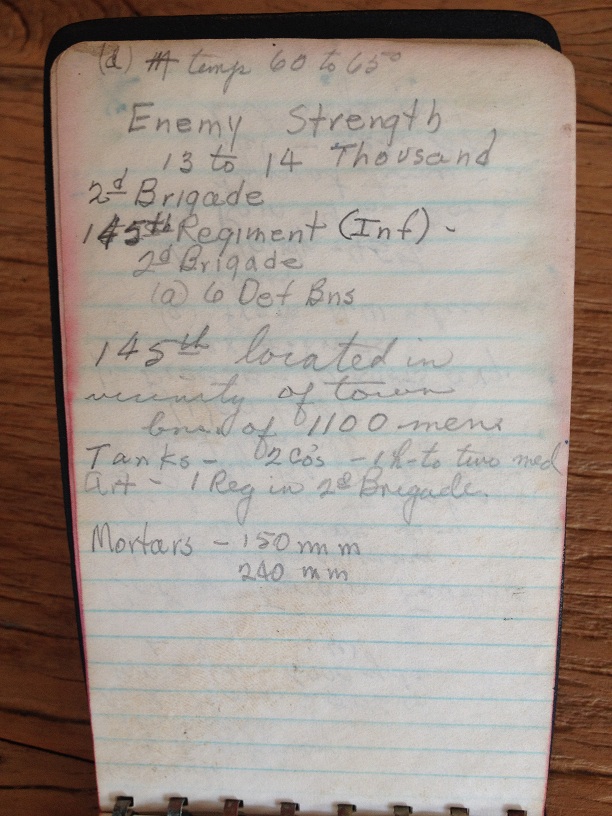 (d) temp 60 to 65°
Enemy Strength
13 to 14 Thousand
2d Brigade
145th Regiment (Inf) -
2d Brigade
(a) 6 Det Bns
145th located in
vicinity of town
of 1100 men
Tanks - 2 Co's - to two med
Art - 1 Reg in 2d Brigade.
Mortars - 150 mm
240 mm